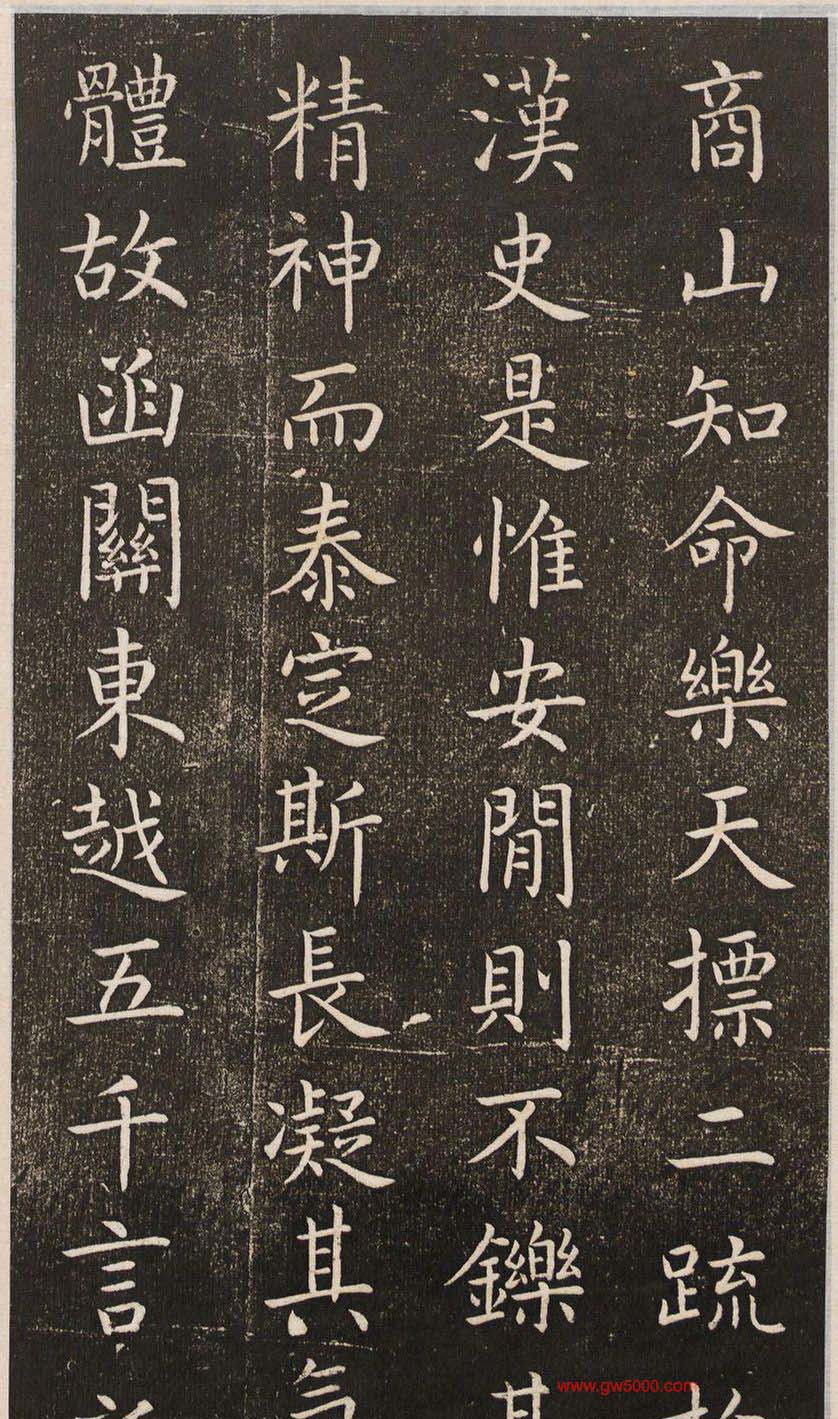 商山知命樂天摽二疏
漢史是惟安閒則不鑠其
精神而泰定斯長凝其氣
體故函關東越五千言
www.gw5000.com